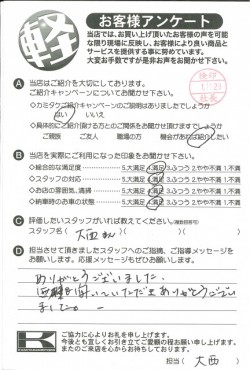 軽
お客様アンケート
当店では、お買い上げ頂いたお客様の声を可能
な限り現場に反映し、お客様により良い商品と
サービスを提供する事に努めています。
大変お手数ですが是非お声をお聞かせ下さい。
A 当店はご紹介を大切にしております。
ご紹介キャンペーンについてお聞かせ下さい。
◇カミタケご紹介キャンペーンのご説明はありましたでしょうか
はい いいえ
◇具体的にご紹介頂ける方とのご関係をお聞かせ頂けますでしょうか
ご親族 ご友人 職場の方 機会があれば紹介したい
検印
店長
B 当店を実際にご利用になった印象をお聞かせ下さい。
◇総合的な満足度 5.大満足 4.満足 3.ふつう 2.やや不満 1.不満
◇スタッフの対応 5.大満足 4.満足 3.ふつう 2.やや不満 1.不満
◇お店の雰囲気、清掃 5.大満足 4.満足 3.ふつう 2.やや不満 1.不満
◇納車時のお車の状態 5.大満足 4.満足 3.ふつう 2.やや不満 1.不満
C 評価したいスタッフがいれば教えてください。(複数回答可)
スタッフ名( 大西
D 担当させて頂きましたスタッフへのご指摘、ご指導メッセージを
お願い致します。応援メッセージもぜひお願い致します。
ありがとうございました。
ありがとうござい
ました。
ご協力に心よりお礼を申し上げます。
今後とも宜しくお引き立てご愛顧の程お願い申し上げます。
またのご来店を心からお待ちしております。
担当( 大西 )